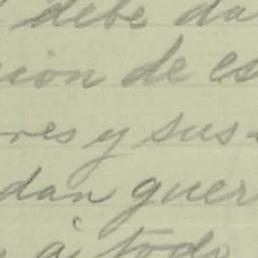 debe da
cion de es
res y sus
dan guer
à todo